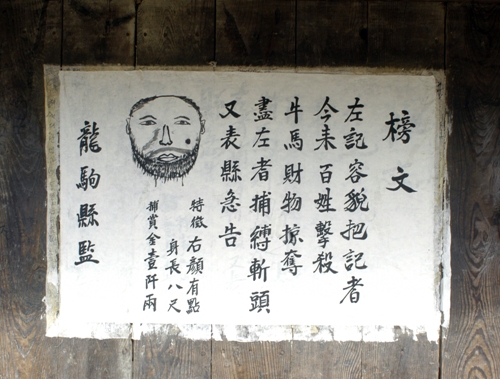 榜文
左記容貌把記者
今来百姓擊殺
牛馬財物掠奪
盡左者捕縛斬頭
又表縣急告
特徵右顔有點
身長八尺
捕賞金壹阡兩
龍駒縣監